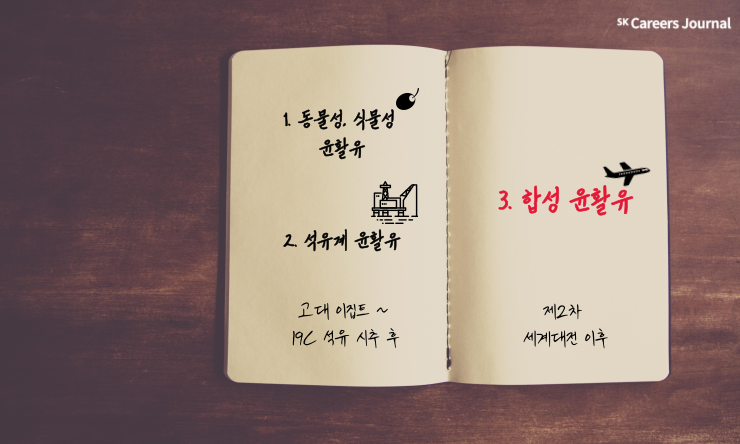 SK Careers Journal
1. 동물성. 식물성
윤활유
2. 석유계 윤활유
고대 이집트 ~
19C 석유 시추 후
3. 합성 윤활유
제2차
세계대전 이후